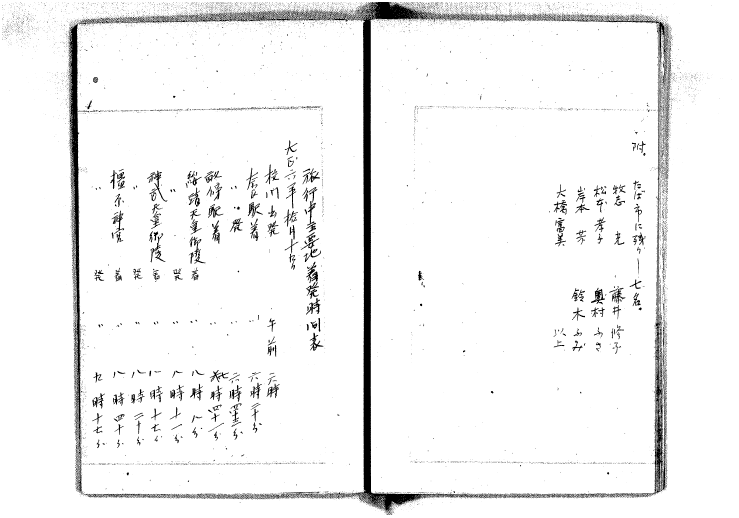 附。
なば市に残りし七名。
牧志 光 藤井修子
松本孝子 奥村ふさ
岸本 芳 鈴木ふみ
大橋富美 以上
旅行中主要地着発時間表
大正六年拾月十六日
校門出発 午前 六時
奈良駅着 〃 六時三十分
〃 発 〃 六時四十三分
畝傍駅着 〃 七時四十一分
綏靖天皇御陵着 〃 八時八分
〃 発 〃 八時十一分
神武天皇御陵着 〃 八時十七分
〃 発 〃 八時三十分
橿原神宮 着 〃 八時四十分
〃 発 〃 九時十七分